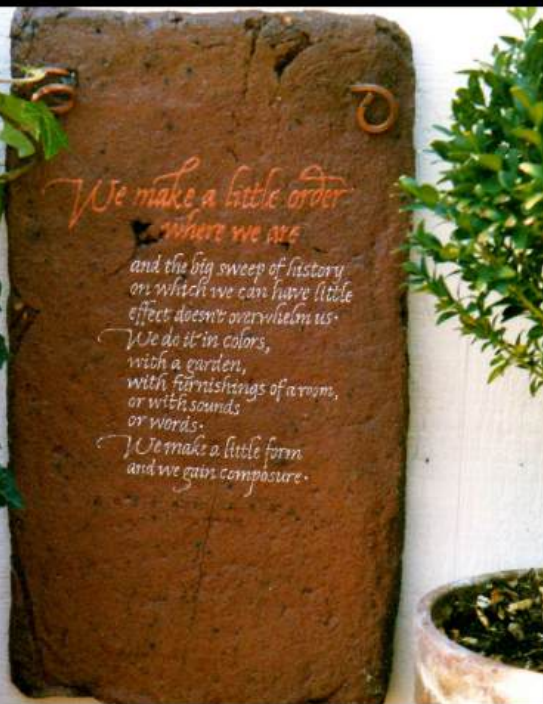 We make a little order
where we are
and the big sweep of history
on which we can have little
effect doesn't overwhelm us·
We do it in colors,
with a garden,
with furnishings of a room,
or with sounds
or words·
We make a little form
and we gain composure·